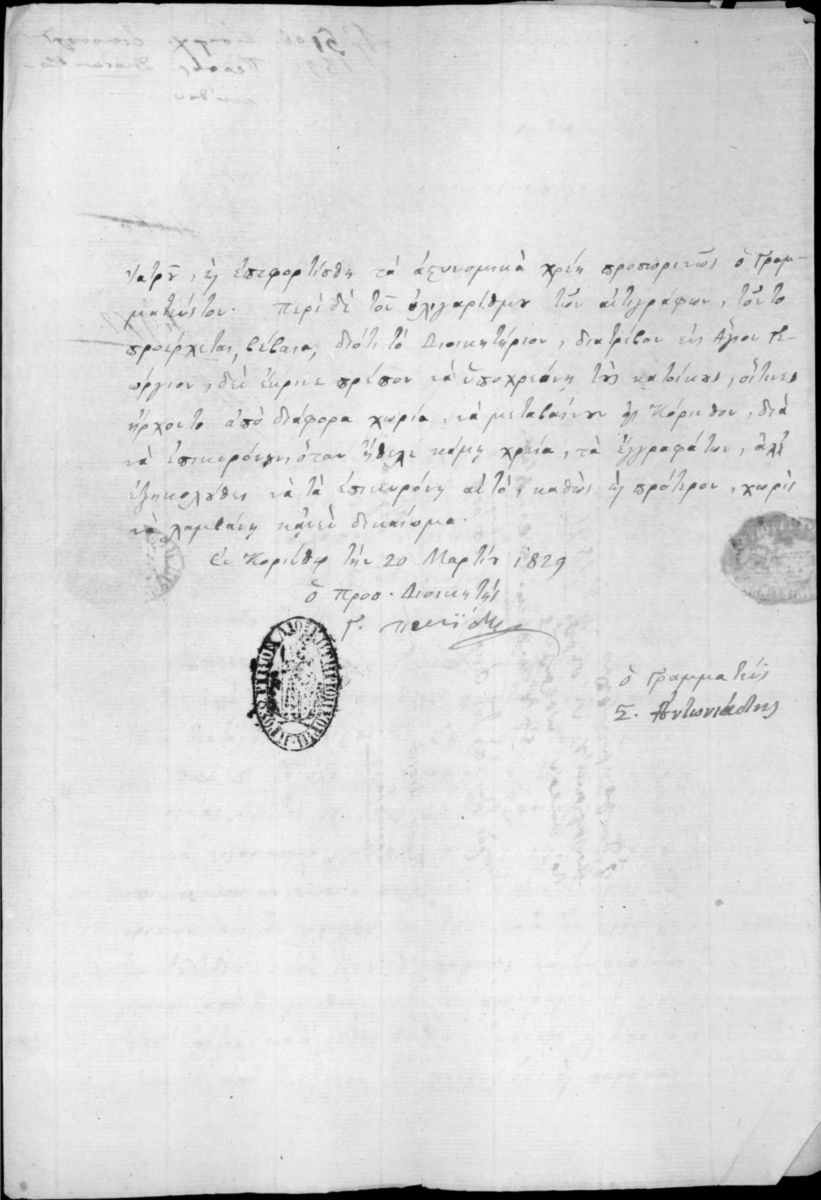 νατον, καὶ ἐπεφορτίσθη τὰ ἀστυνομικὰ χρέη προσωρινῶς ὁ Γραμ-
ματεύς του. Περὶ δὲ τοῦ ὀλιγαρίθμου τῶν ἀντιγράφων, τοῦτο
προέρχεται, βέβαια, διότι τὸ Διοικητήριον, διατρίβον εἰς Ἅγιον Γε-
ώργιον, δὲν ἔκρινε πρέπον νὰ ὑποχρεώνῃ τοὺς κατοίκους, οἵτινες
ἤρχοντο ἀπὸ διάφορα χωρία, νὰ μεταβαίνουν εἰς Κόρινθον, διὰ
νὰ ἐπικυρώνουν, ὅταν ἤθελε κάμῃ χρεία, τὰ ἔγγραφά των, ἀλλ'
ἐξηκολούθει νὰ τὰ ἐπικυρώνῃ αὐτό, καθὼς καὶ πρότερον, χωρὶς
νὰ λαμβάνῃ κανὲν δικαίωμα.
Ἐν Κορίνθῳ τὴν 20 Μαρτίου 1829
ὁ Προσ. Διοικητής
Γ.
ὁ Γραμματεύς
Σ. Ἀντωνιάδης